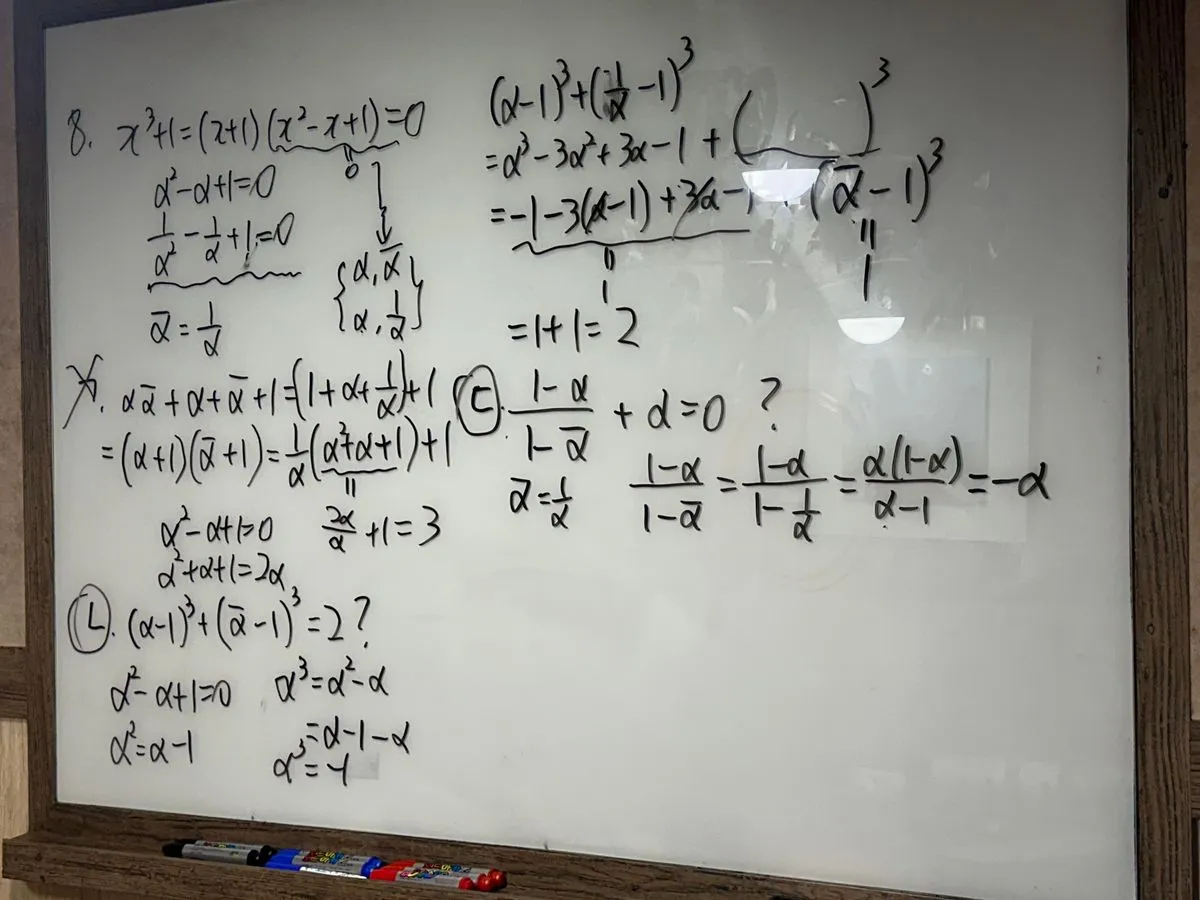 8. x³+1=(x+1)(x²-x+1)=0
"
0
α²-α+1=0
1/α² - 1/α +1=0
{α, ᾱ
α, 1/α}
ᾱ = 1/α
ㄱ. αᾱ+α+ᾱ+1=(1+α+1/α)+1
=(α+1)(ᾱ+1)=1/α(α²+α+1)+1
"
α²-α+1=0 2α/α +1=3
α²+α+1=2α
ㄴ. (α-1)³+(ᾱ-1)³=2?
α²-α+1=0 α³=α²-α
α²=α-1 =α-1-α
α³=-1
(α-1)³+(1/α -1)³
=α³-3α²+3α-1+( )³
=-1-3(α-1)+3α-1 + (ᾱ-1)³
" "
1 1
=1+1=2
ㄷ. (1-α)/(1-ᾱ) + α=0 ?
ᾱ=1/α (1-α)/(1-ᾱ) = (1-α)/(1-1/α) = α(1-α)/(α-1) = -α